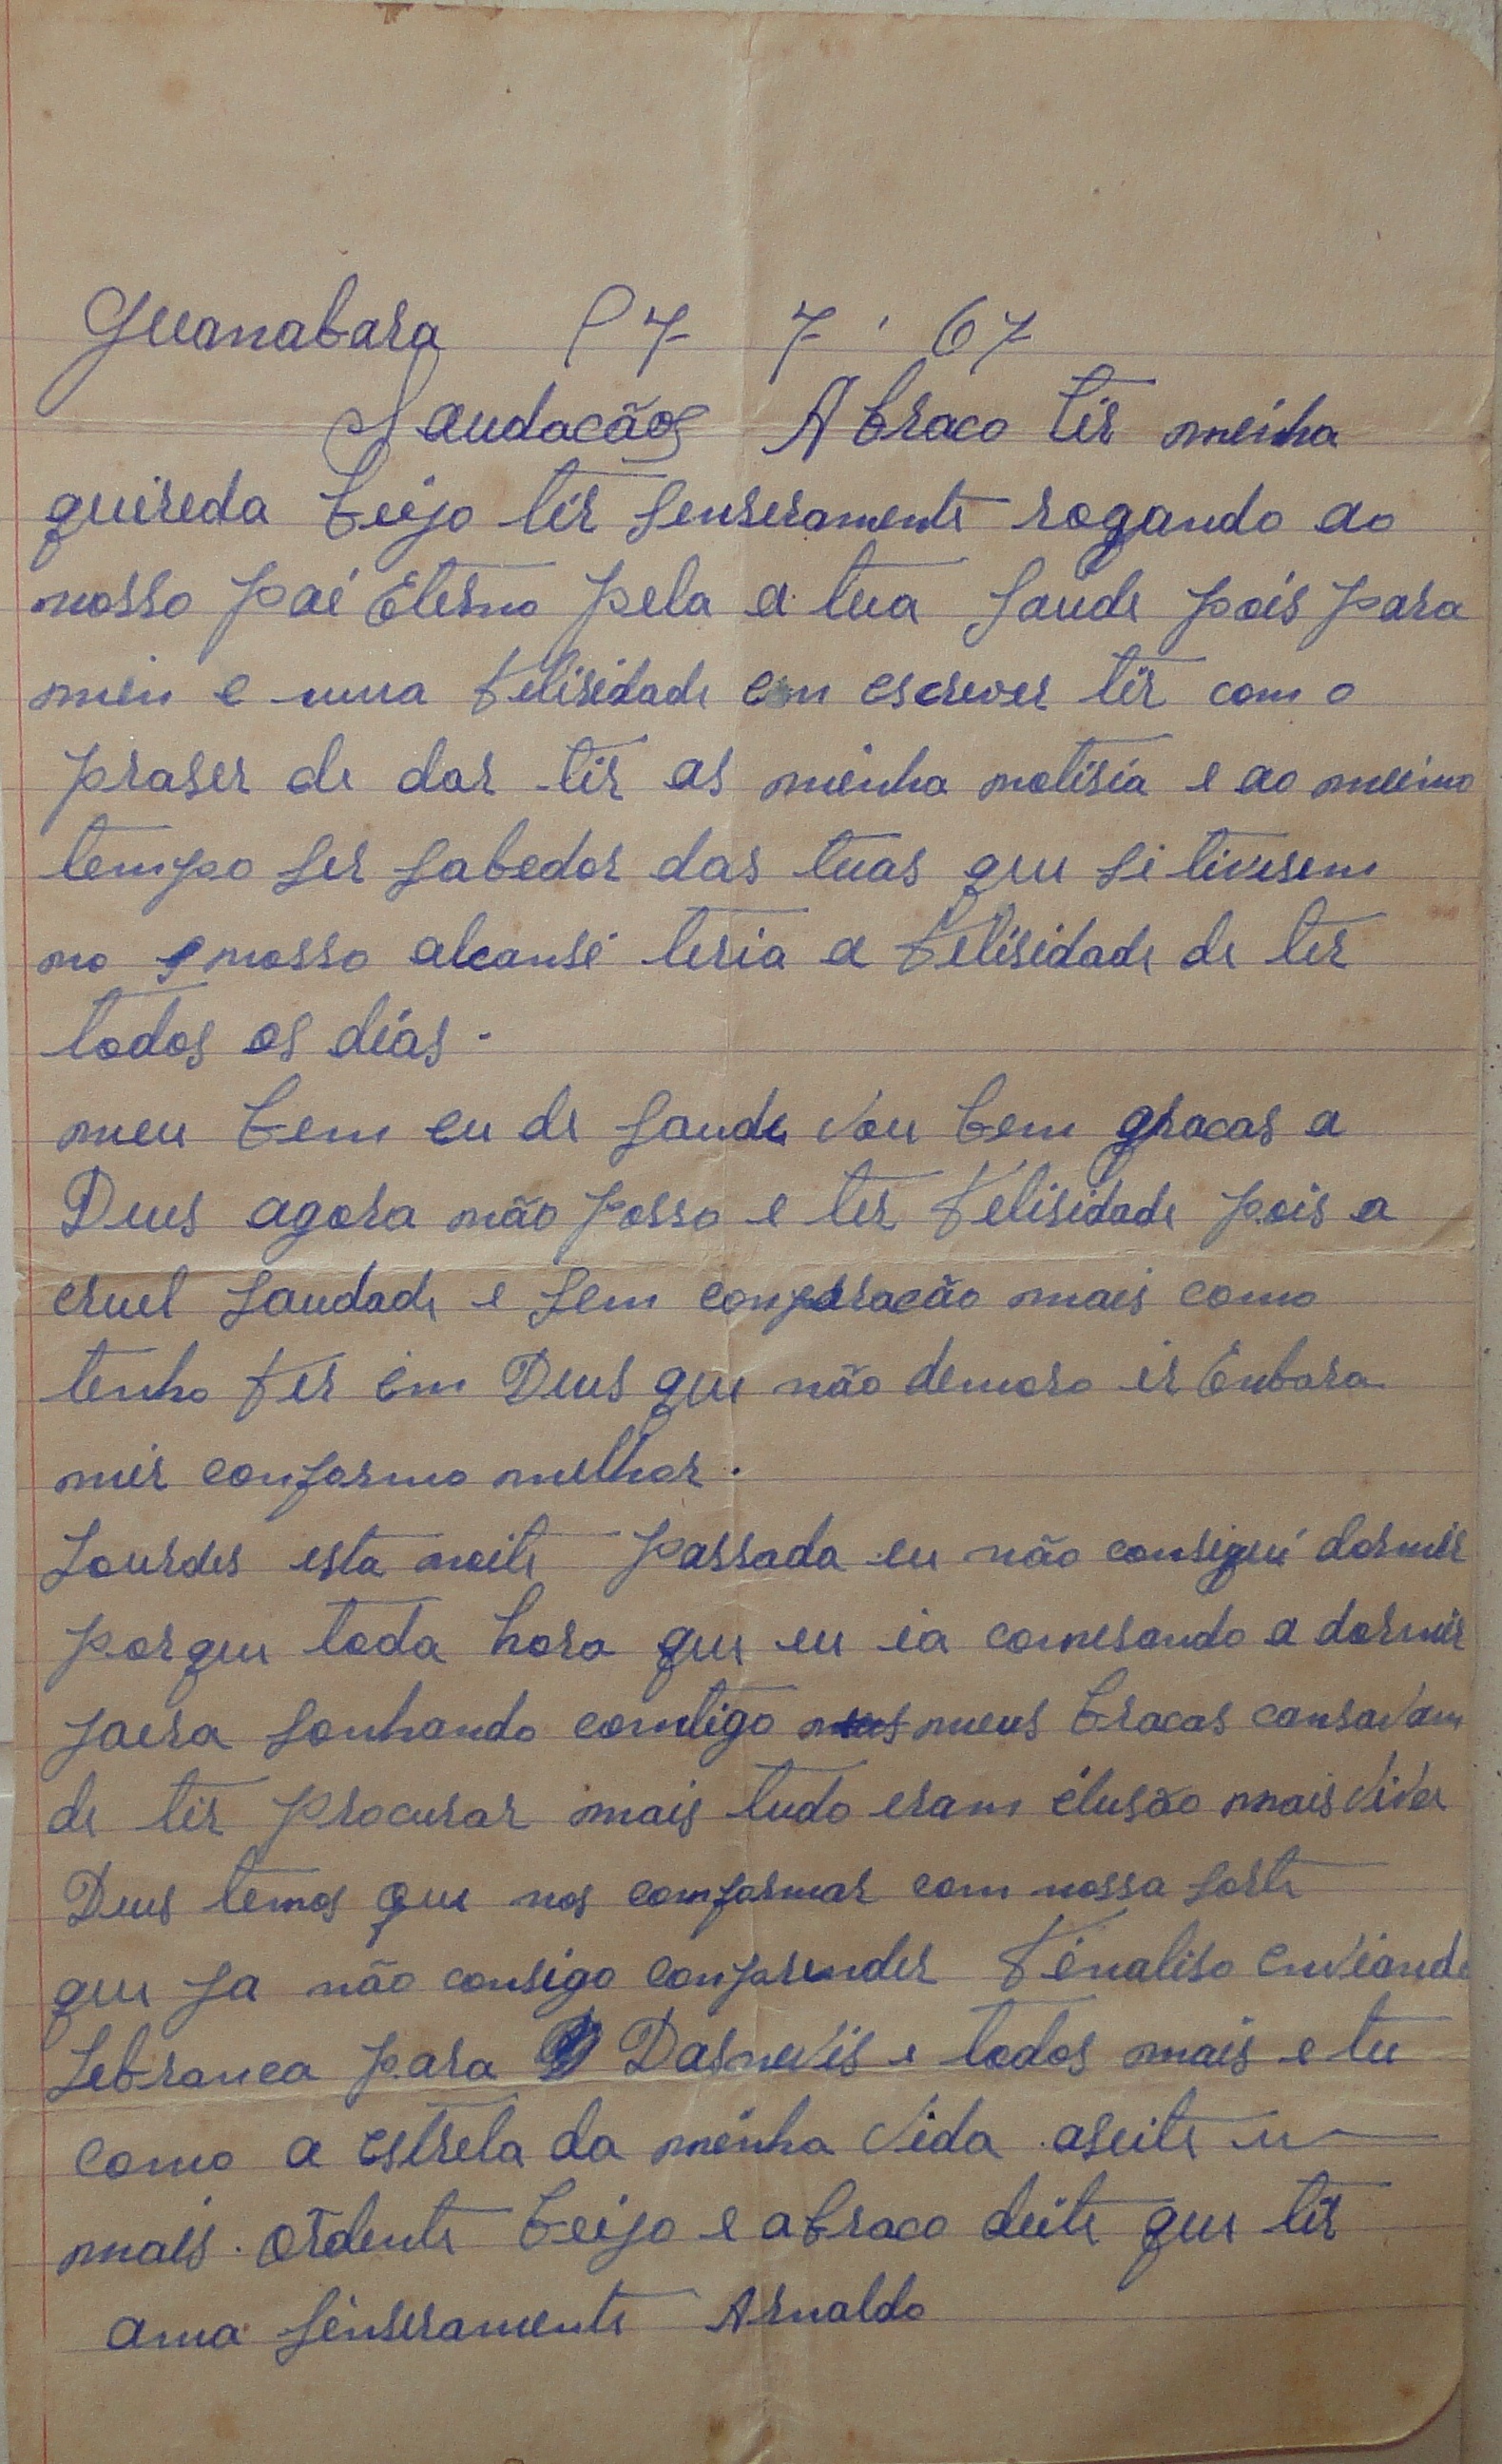 Guanabara 17 7 · 67
Saudacãos Abraco tir minha
quireda beijo tir senseramente rogando ao
nosso pai Eterno pela a tua saude pois para
min e uma felisidade em escrever tir com o
praser de dar-tir as minha notisia e ao meimo
tempo ser sabedor das tuas que si tivesem
no nosso alcanse teria a felisidade de ter
todos os dias.
meu bem eu de saude vou bem gracas a
Deus agora não posso e ter felisidade pois a
cruel saudade e sem conparacão mais como
tenho fer em Deus que não demoro ir Enbora
mir conformo melhor.
Lourdes esta noite passada eu não consigui dormir
porque toda hora que eu ia comesando a dormir
jaera sonhando comtigo meus bracos cansavam
de tir procurar mais tudo eram elusão mais viva
Deus temos que nos comformar com nossa sorte
que ja não consigo conprender finaliso enviando
lebranca para Dasnevis e todos mais e tu
como a estrela da minha vida aseite u
mais ordente beijo e abraco deite que tir
ama senseramente Arnaldo